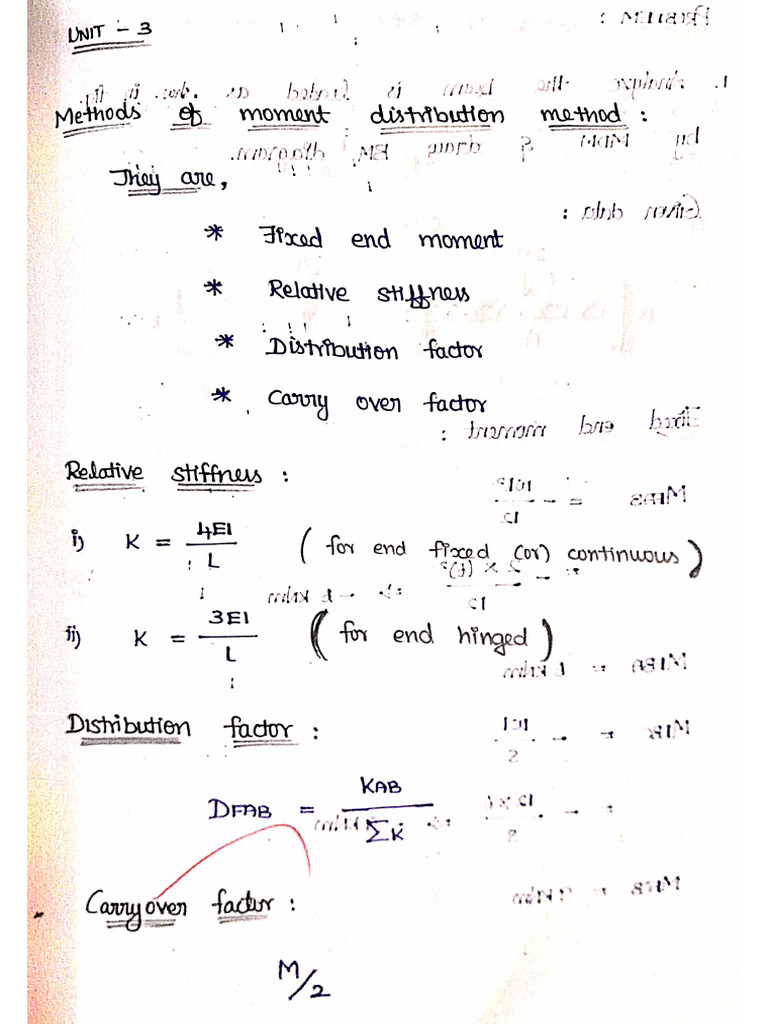 UNIT - 3
Methods of moment distribution method :
They are,
* Fixed end moment
* Relative stiffness
* Distribution factor
* Carry over factor
Relative stiffness :
i) K = 4EI / L ( for end fixed (or) continuous )
ii) K = 3EI / L ( for end hinged )
Distribution factor :
DFAB = KAB / ΣK
Carryover factor :
M/2